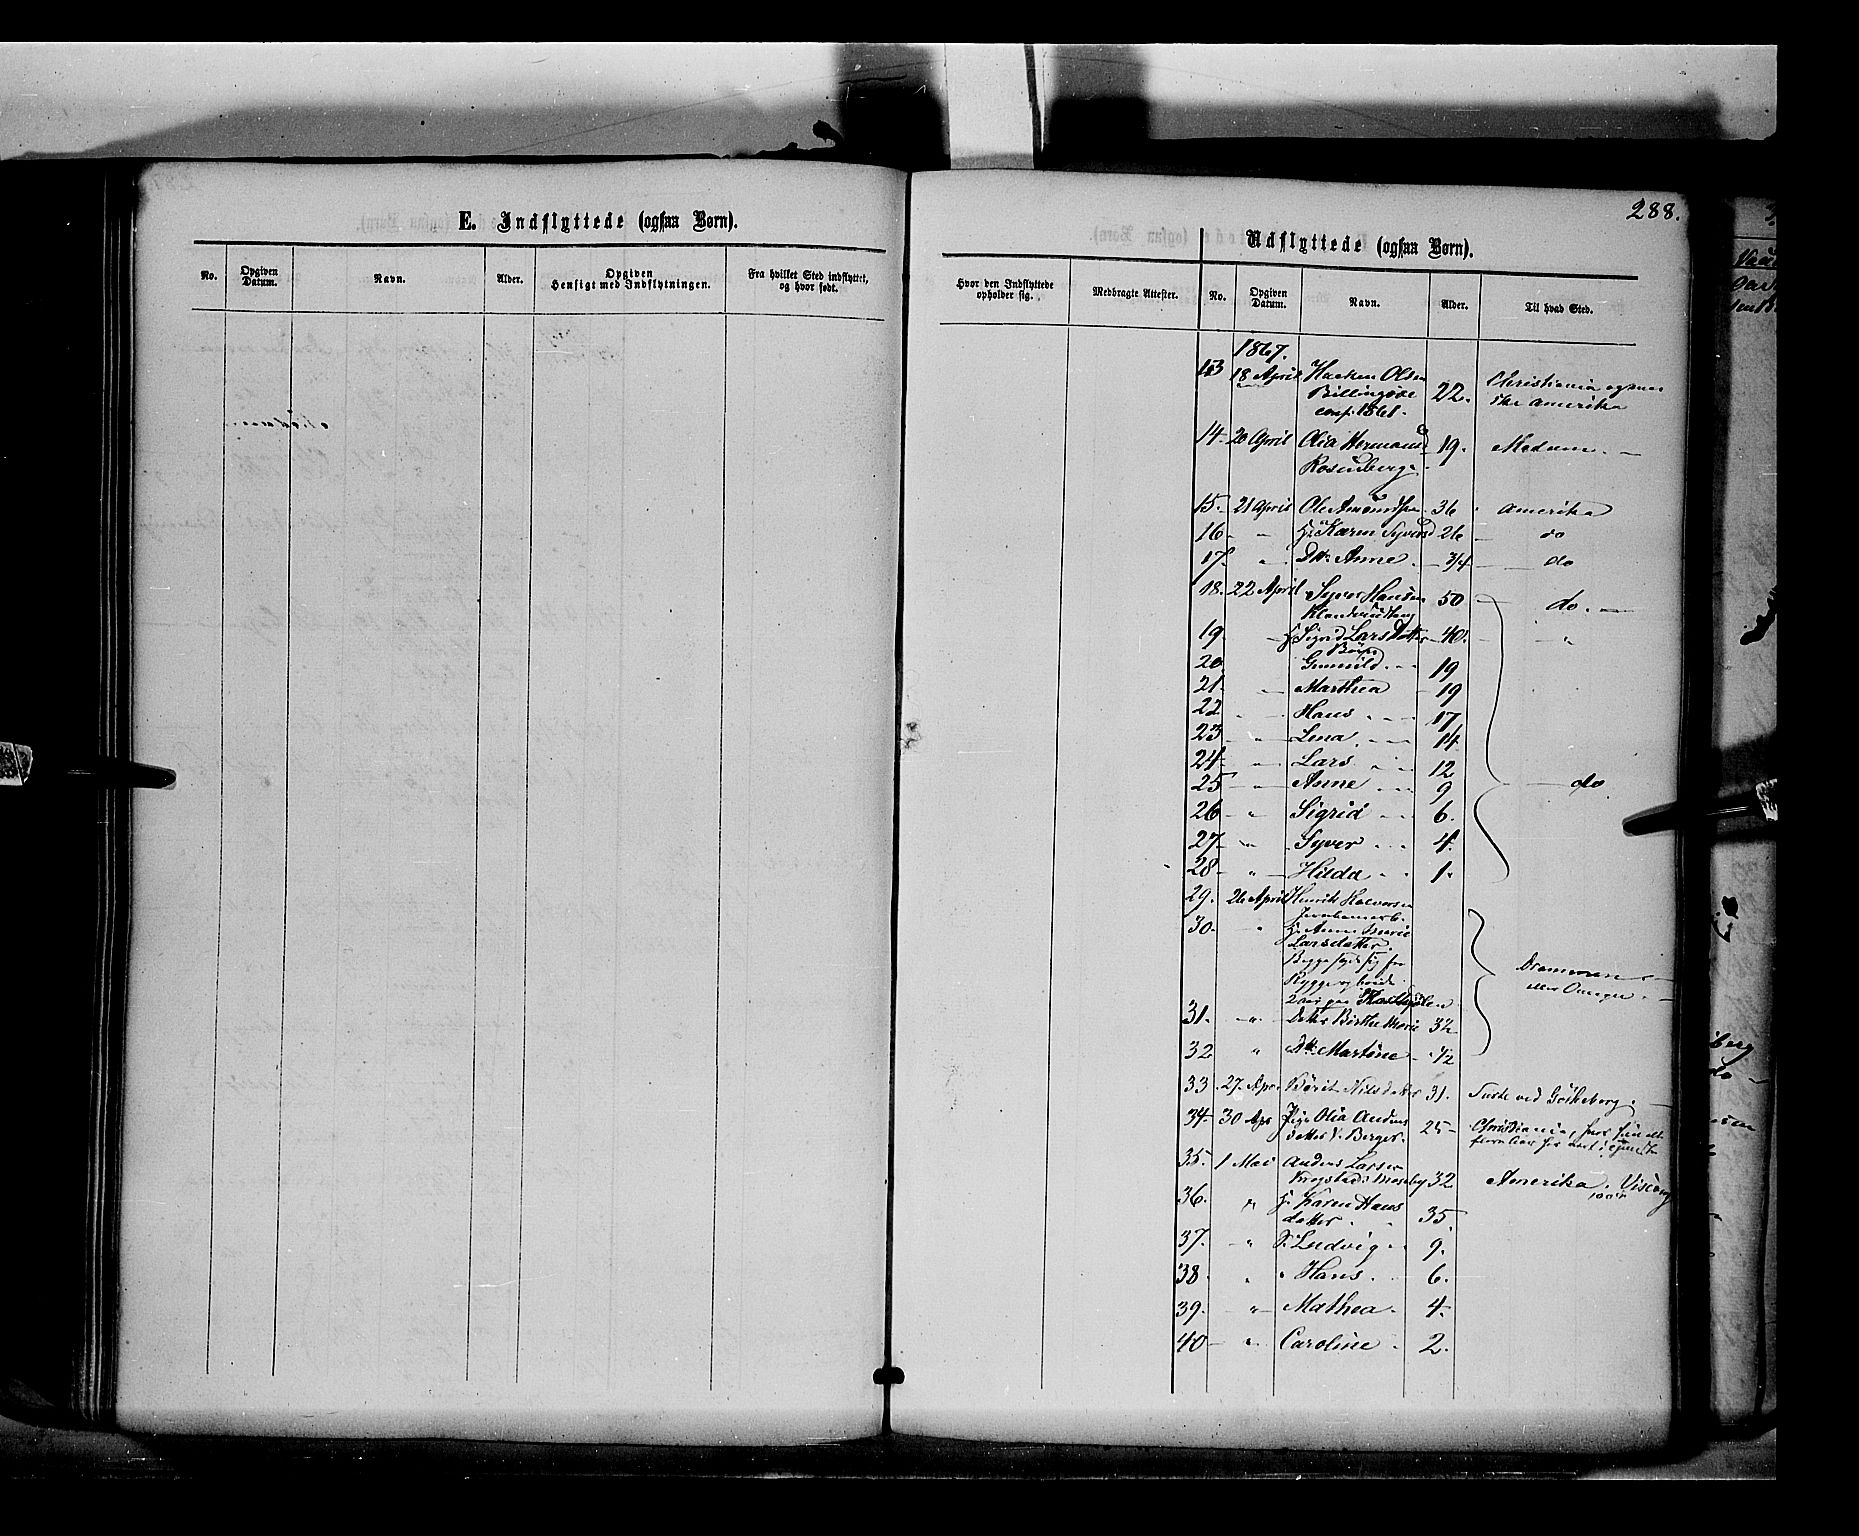 288.
E. Indflyttede (ogsaa Børn).
No.
Opgiven
Datum.
Navn.
Alder.
Opgiven
Hensigt med Indflytningen.
Fra hvilket Sted indflyttet,
og hvor født.
Hvor den Indflyttede
opholder sig.
Medbragte Attester.
Udflyttede (ogsaa Børn).
No.
Opgiven
Datum.
Navn.
Alder.
Til hvad Sted.
1867.
13 18 April Haaken Olsen 22. Christiania
conf. 1861. Amerika
14 20 April Olia Hermansd 19. Modum.
Rosenberg
15. 21 April Ole Amundsen 36 Amerika
16 " H. Karen Syversd 26 do
17. " Dtr Anne 3/4 do
18. 22 April Syver Hansen 50 do.
19 H Sigrid Lars Datter 40. "
Børn
20. Gunnild 19
21. " Marthea 19
22 " Hans 17
23 " Lena 14
24 " Lars 12
25 " Anne 9 do
26 " Sigrid 6.
27 " Syver 4.
28 " Hilda 1.
29. 26 April Henrik Halvorsen
30. " H. Anne Marie
Larsdatter.
Drammen
eller Omegn.
31. " Datter Birthe Marie 32
32 " Dtr Martine 1/2
33 27. Apr Børit Nilsdatter 31. ved Gøtheborg.
34. 30 Apr Pige Olia Anders 25 Christiania, hvor hun
datter Berger.
35. 1 Mai Anders Larsen
Krogstad Moseby 32 Amerika. Viscon
36. " H. Karen Hans
datter 35.
37. " S. Ludvig 9.
38 " " Hans. 6.
39. " Mathea. 4.
40 " Caroline 2.